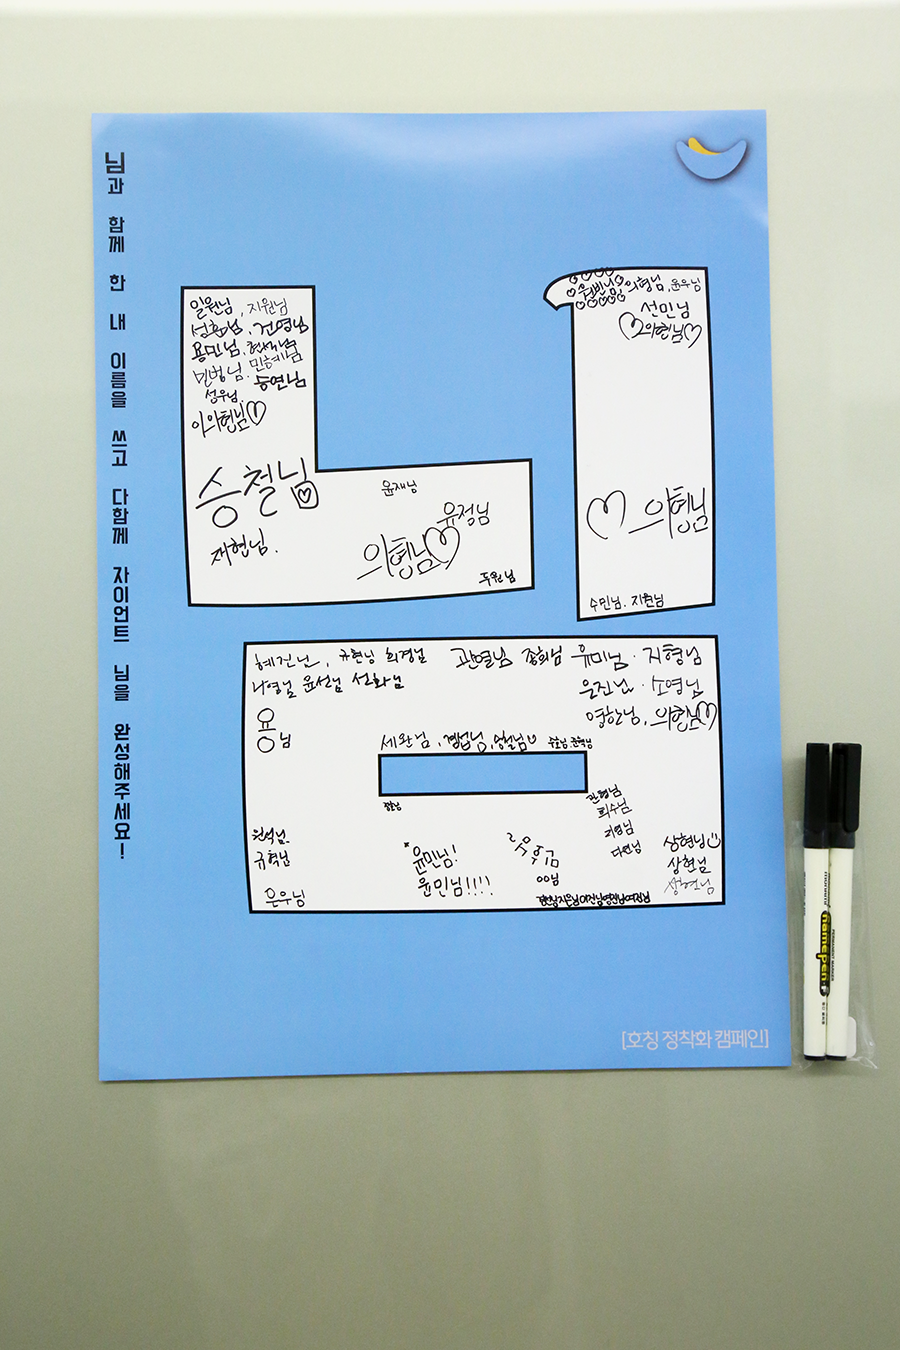 님과 함께 한 내 이름을 쓰고 다함께 자이언트 님을 완성해주세요!
일원님, 지원님
건영님
용민님,
민범님. 민혜님
승연님
성우님
이의형님♡
승철님
재현님.
윤재님
유정님
의형님♡
두원님
원빈님 의형님, 윤우님
선민님
♡의형님♡
♡ 의형님
수민님. 지원님
혜진님, 규현님 희경님
나영님 윤선님 선화님
용님
관열님 종희님 유미님 · 지형님
은진님 · 소영님
영한님, 의형님♡
세완님, 경섭님,
관형님
희수님
지영님
다현님
원석님
규혁님
은우님
윤민님!
윤민님!!!!
OO님
상현님
상현님
성현님
[호칭 정착화 캠페인]
namepen